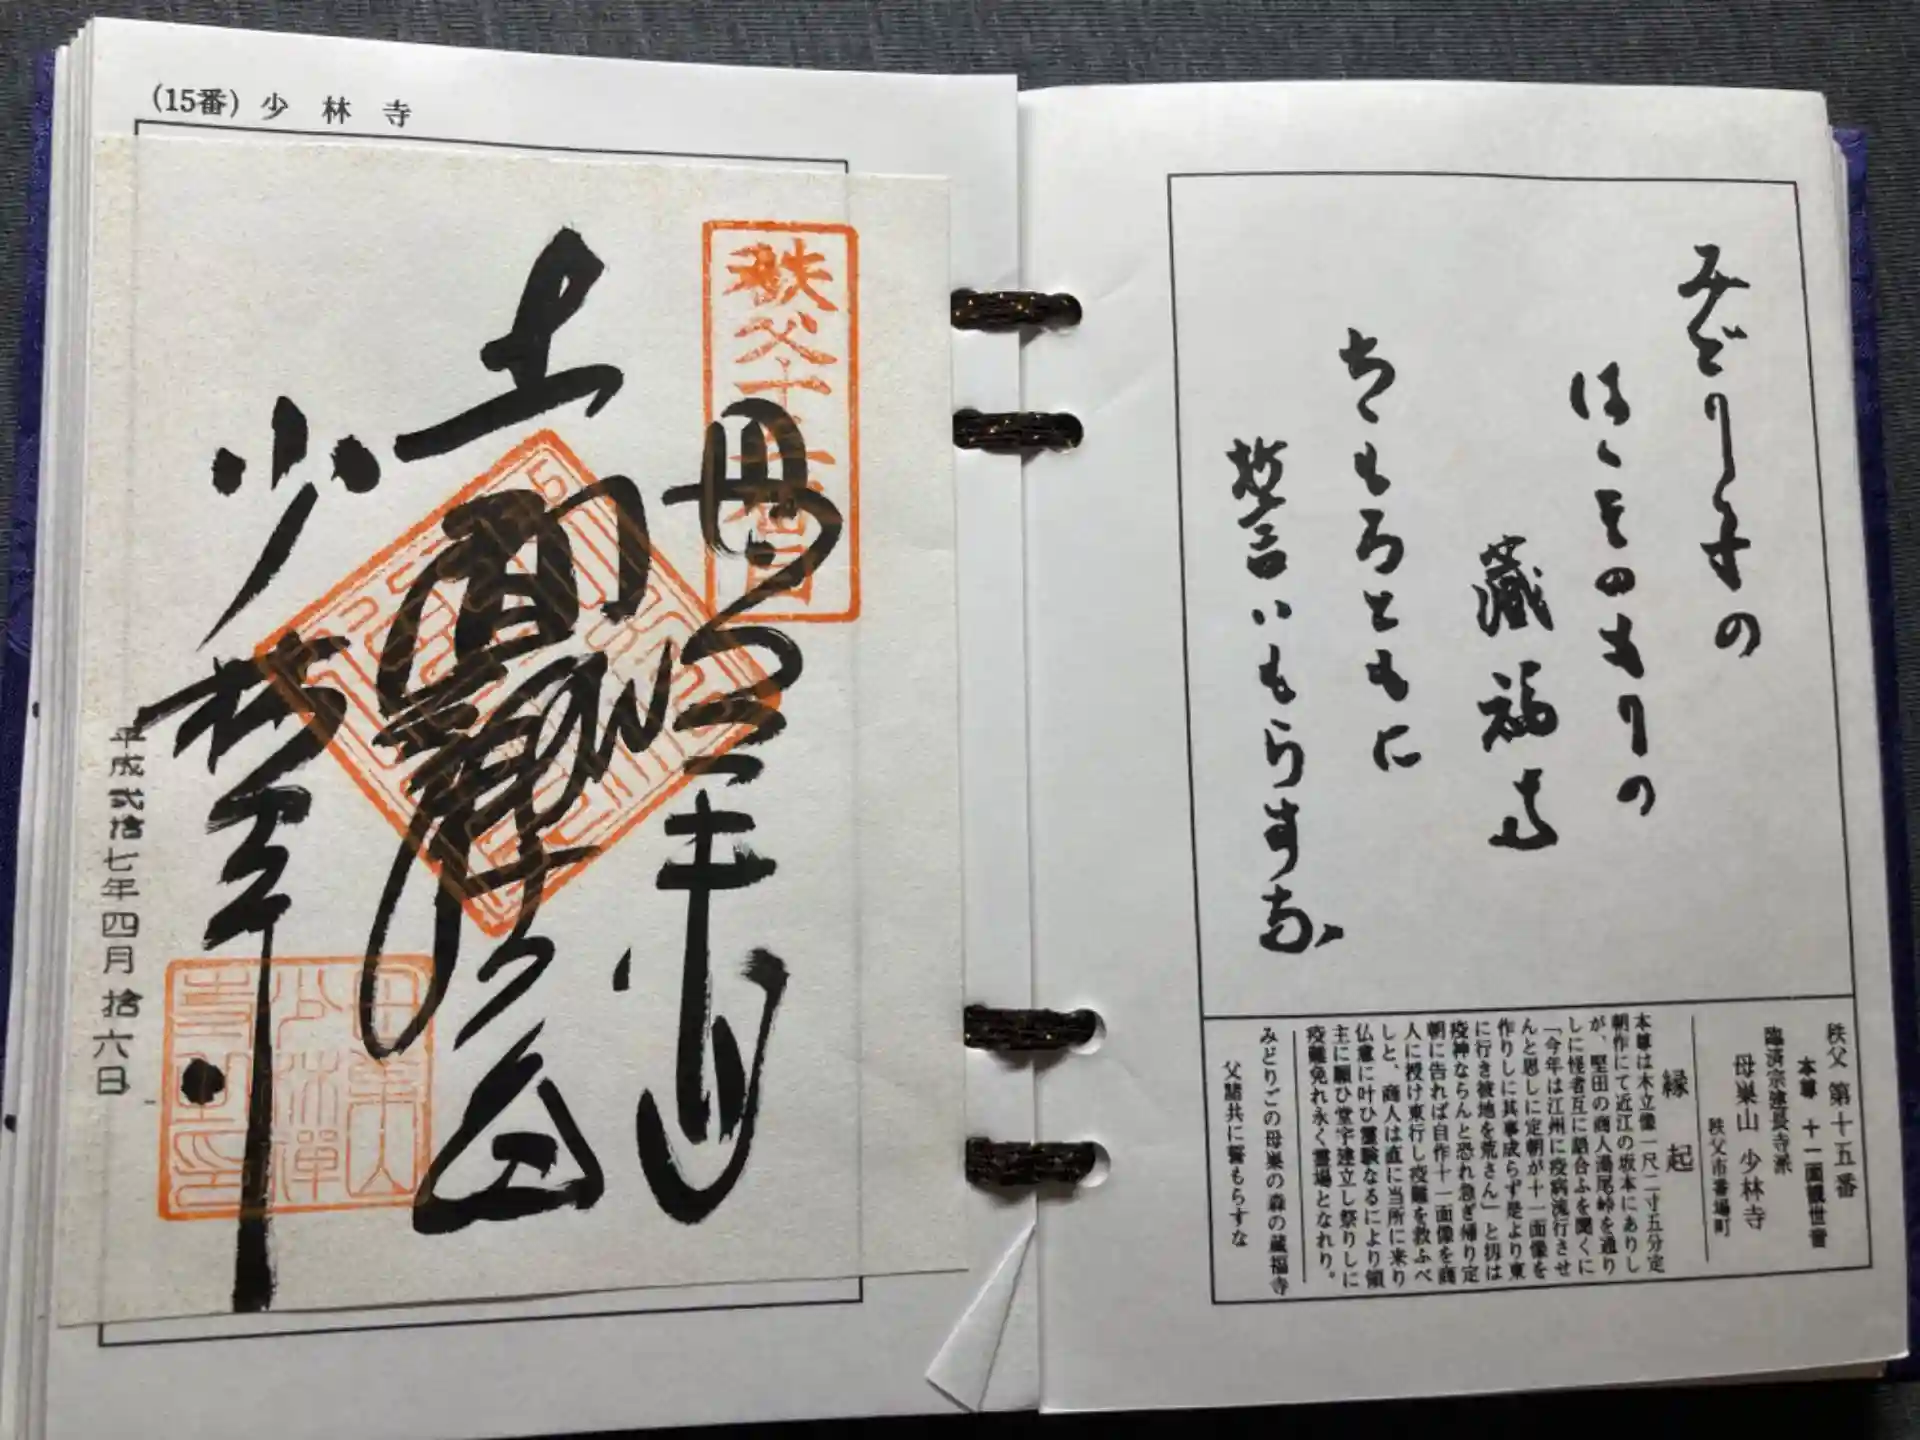 (15番) 少林寺
秩父十五番
母巣山
十一面観世音
少林寺
平成弐拾七年四月拾六日
みどり子の
はゝそのもりの
蔵福寺
ちゝもろともに
誓いもらすな
秩父 第十五番
本尊 十一面観世音
臨済宗建長寺派
母巣山 少林寺
秩父市番場町
縁起
本尊は木立像一尺二寸五分定
朝作にて近江の坂本にありし
が、堅田の商人湯尾峠を通り
しに怪者互に語合ふを聞くに
「今年は江州に疫病流行させ
んと思しに定朝が十一面像を
作りしに其事成らず是より東
に行き彼地を荒さん」と扨は
疫神ならんと恐れ急ぎ帰り定
朝に告れば自作十一面像を商
人に授け東行し疫難を救ふべ
しと、商人は直に当所に来り
仏意に叶ひ霊験なるにより領
主に願ひ堂宇建立し祭りしに
疫難免れ永く霊場となれり。
みどりごの母巣の森の蔵福寺
父諸共に誓もらすな